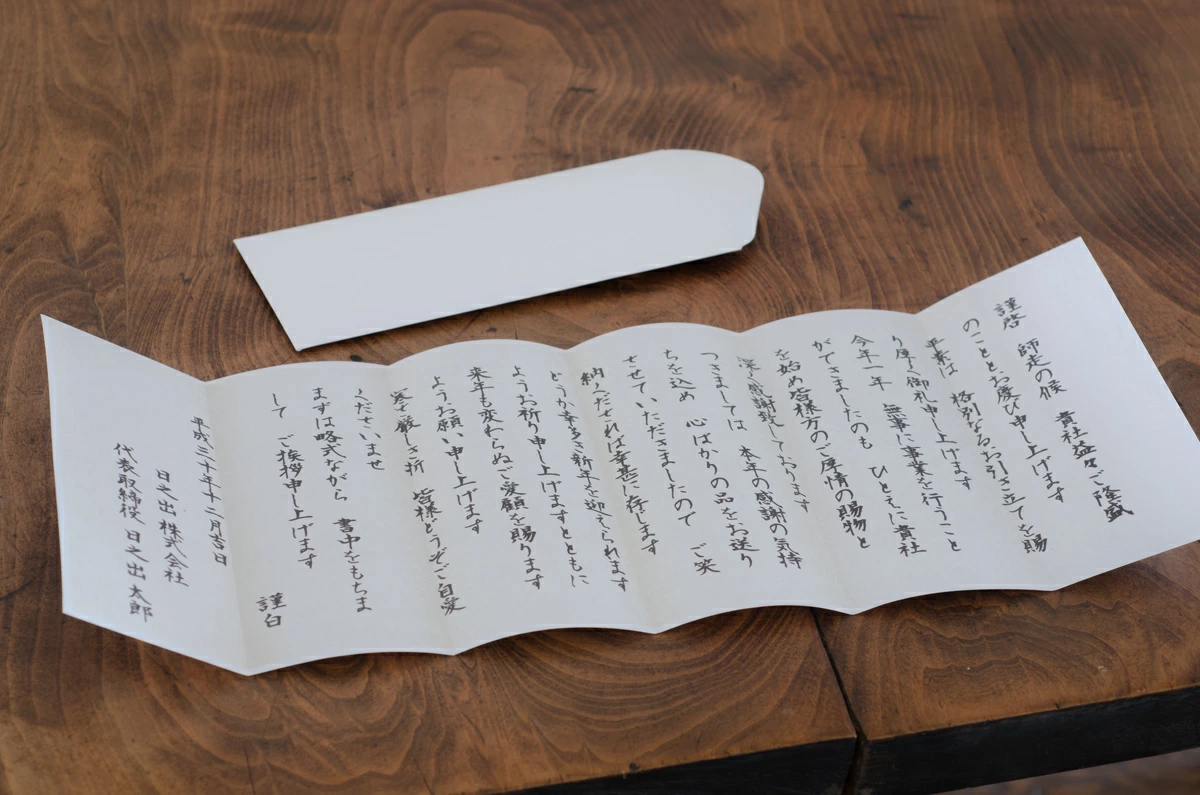 謹啓　師走の候　貴社益々ご隆盛
のこととお慶び申し上げます
平素は　格別なるお引き立てを賜
り厚く御礼申し上げます
今年一年　無事に事業を行うこと
ができましたのも　ひとえに貴社
を始め皆様方のご厚情の賜物と
深く感謝致しております
つきましては　本年の感謝の気持
ちを込め　心ばかりの品をお送り
させていただきましたので　ご笑
納くだされば幸甚に存じます
どうか幸多き新年を迎えられます
ようお祈り申し上げますとともに
来年も変わらぬご愛顧を賜ります
ようお願い申し上げます
寒さ厳しき折　皆様どうぞご自愛
くださいませ
まずは略式ながら　書中をもちま
して　ご挨拶申し上げます
謹白
平成三十年十二月吉日
日之出株式会社
代表取締役　日之出太郎